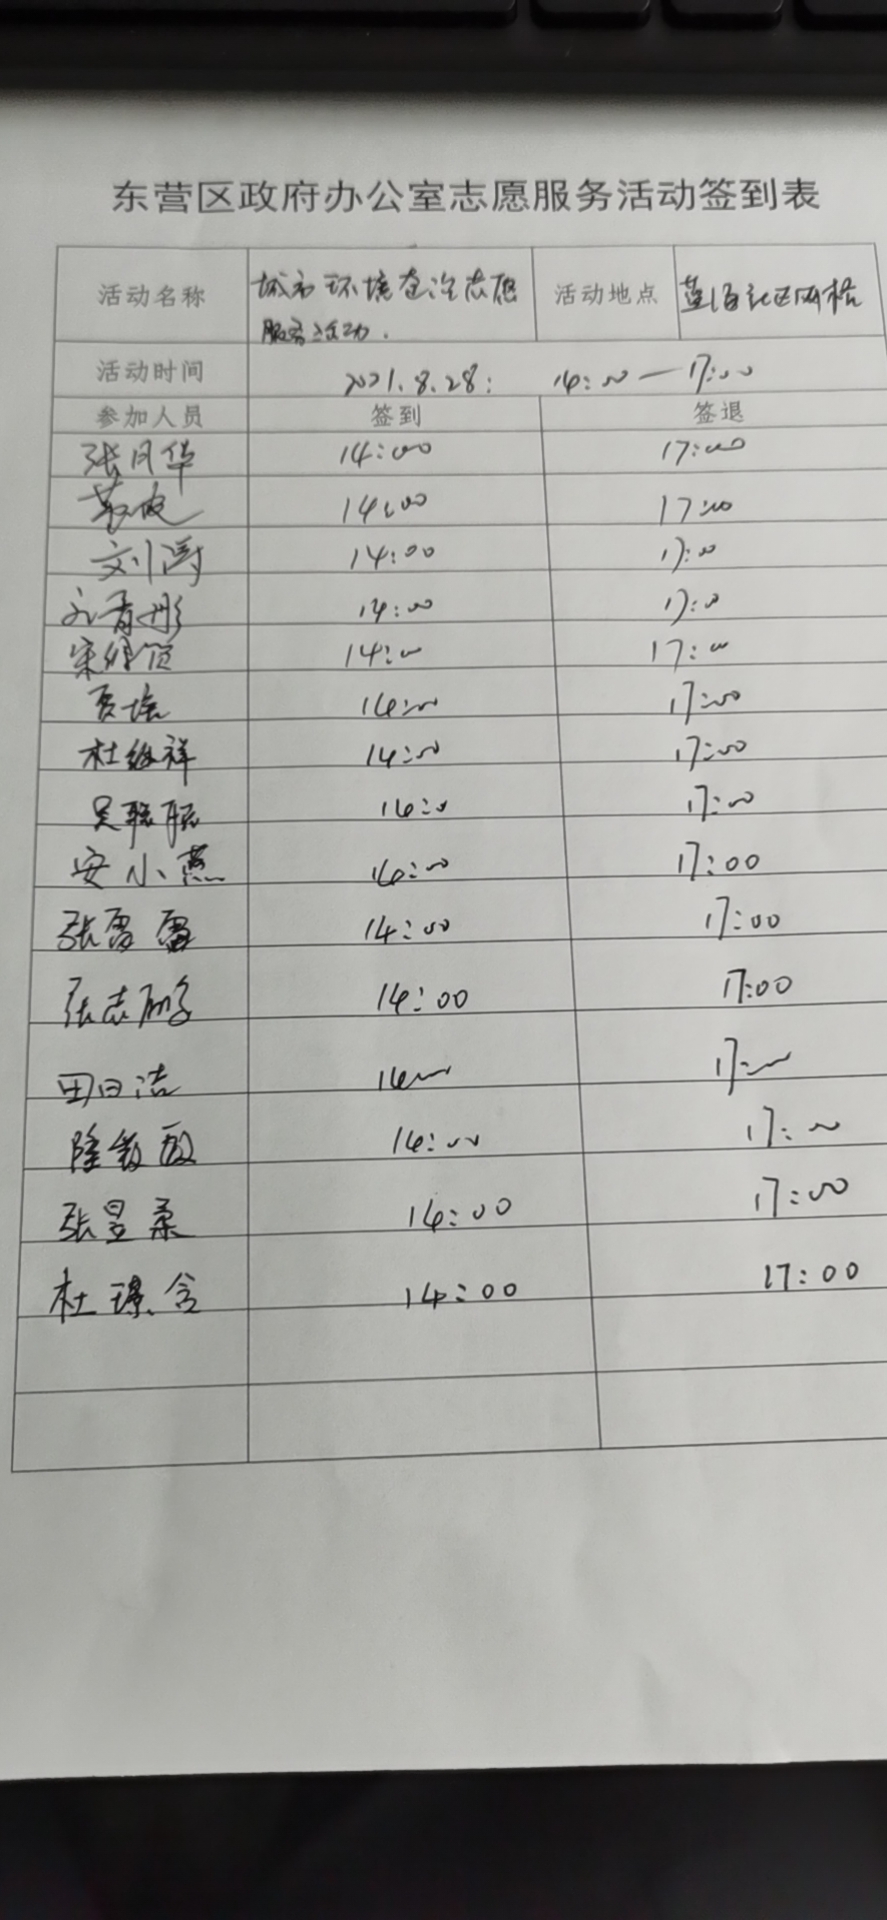 东营区政府办公室志愿服务活动签到表
活动名称 城市环境 志愿 活动地点 社区网格
服务活动.
活动时间 2021.8.28: 14:00—17:00
参加人员 签到 签退
张月华 14:00 17:00
14:00 17:00
刘涛 14:00 17:00
14:00 17:00
宋 14:00 17:00
14:00 17:00
杜 祥 14:00 17:00
吴 14:00 17:00
安小燕 14:00 17:00
张雷雷 14:00 17:00
张志鹏 14:00 17:00
田日洁 14:00 17:00
隆 14:00 17:00
张昱柔 14:00 17:00
杜璟含 14:00 17:00